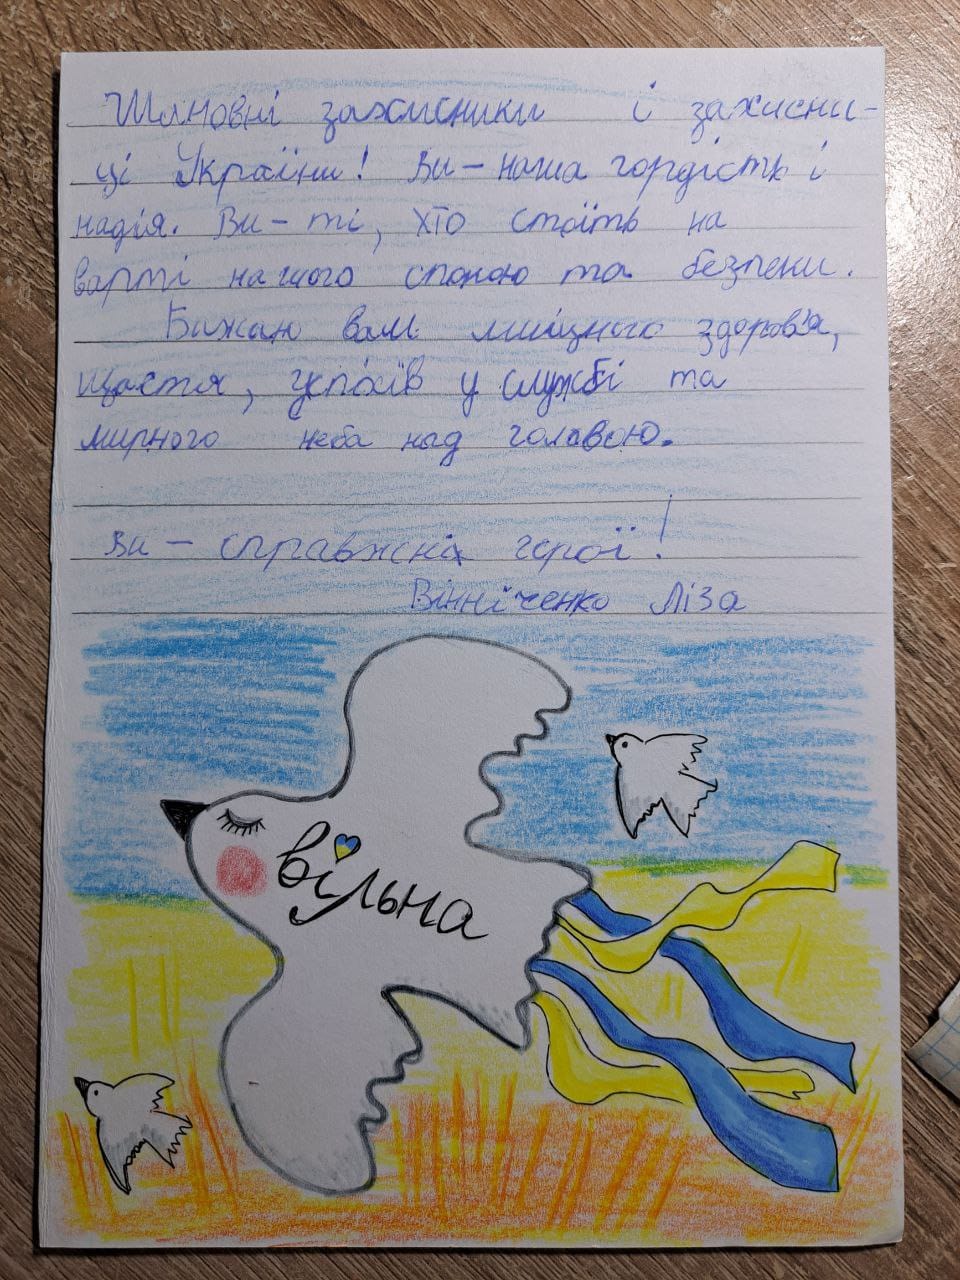 Шановні захисники і захисни-
ці України! Ви - наша гордість і
надія. Ви - ті, хто стоїть на
варті нашого спокою та безпеки.
Бажаю вам міцного здоров'я,
щастя, успіхів у службі та
мирного неба над головою.
Ви - справжні герої!
Вінніченко Ліза
вільна